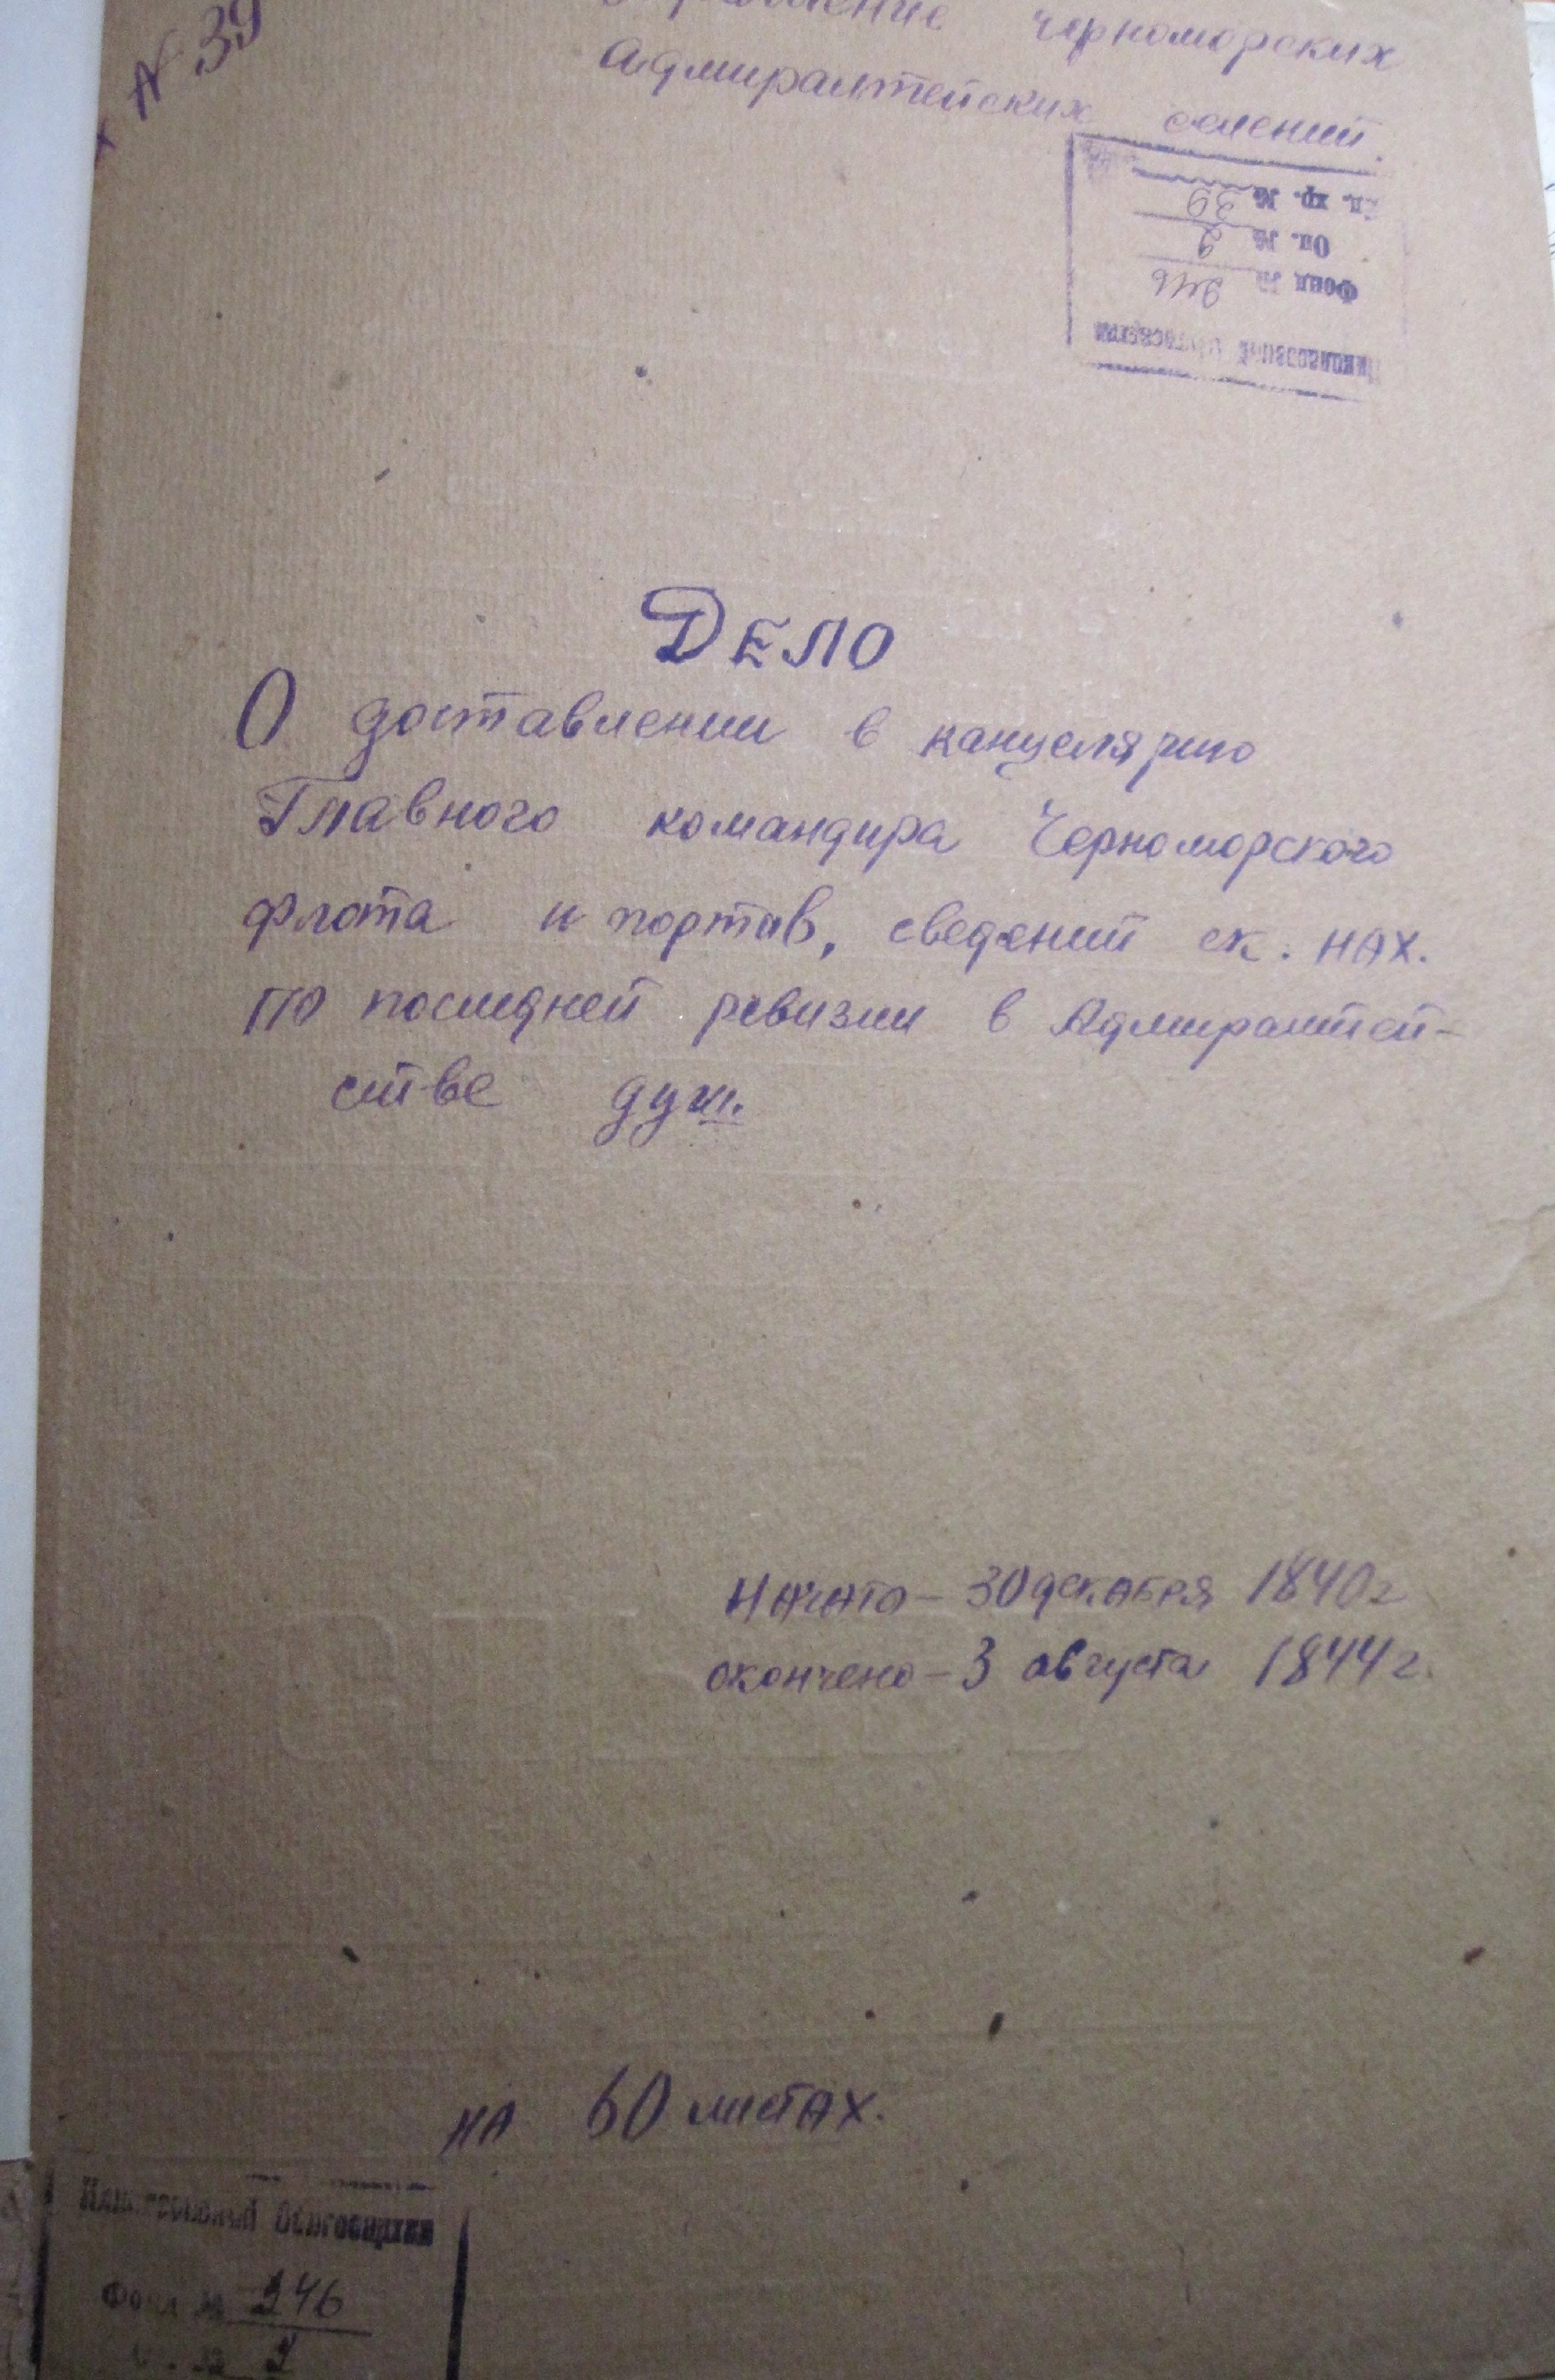 N 39
черноморских
Адмиралтейских селений.
Ед. хр. № 39
Оп. № 2
Фонд № 246
Дело
О доставлении в канцелярию
Главного командира Черноморского
флота и портав, сведений ск. нах.
по последней ревизии в Адмиралтей-
стве душ.
Начато – 30 декабря 1840 г
окончено – 3 августа 1844 г.
на 60 листах.
Облгосархив
Фонд № 246